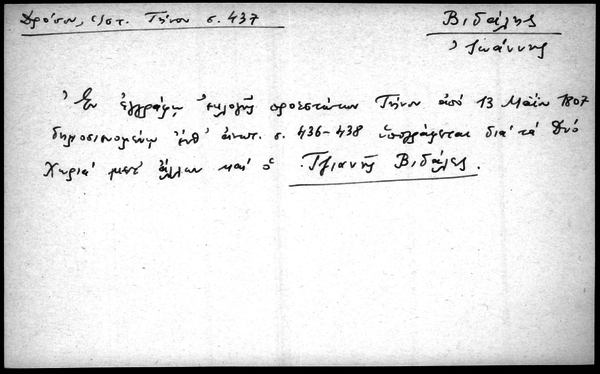 Δρόσου, Ἱστ. Τήνου σ. 437
Βιδάλης
Ἰωάννης
Ἐν ἐγγράφῳ ἐκλογῆς προεστώτων Τήνου ἀπό 13 Μαΐου 1807
δημοσιευομένῳ ἐνθ' ἀνωτ. σ. 436-438 ὑπογράφεται διά τά Δυό
Χωριά μετ' ἄλλων καί ὁ Τζιαννῆς Βιδάλες.